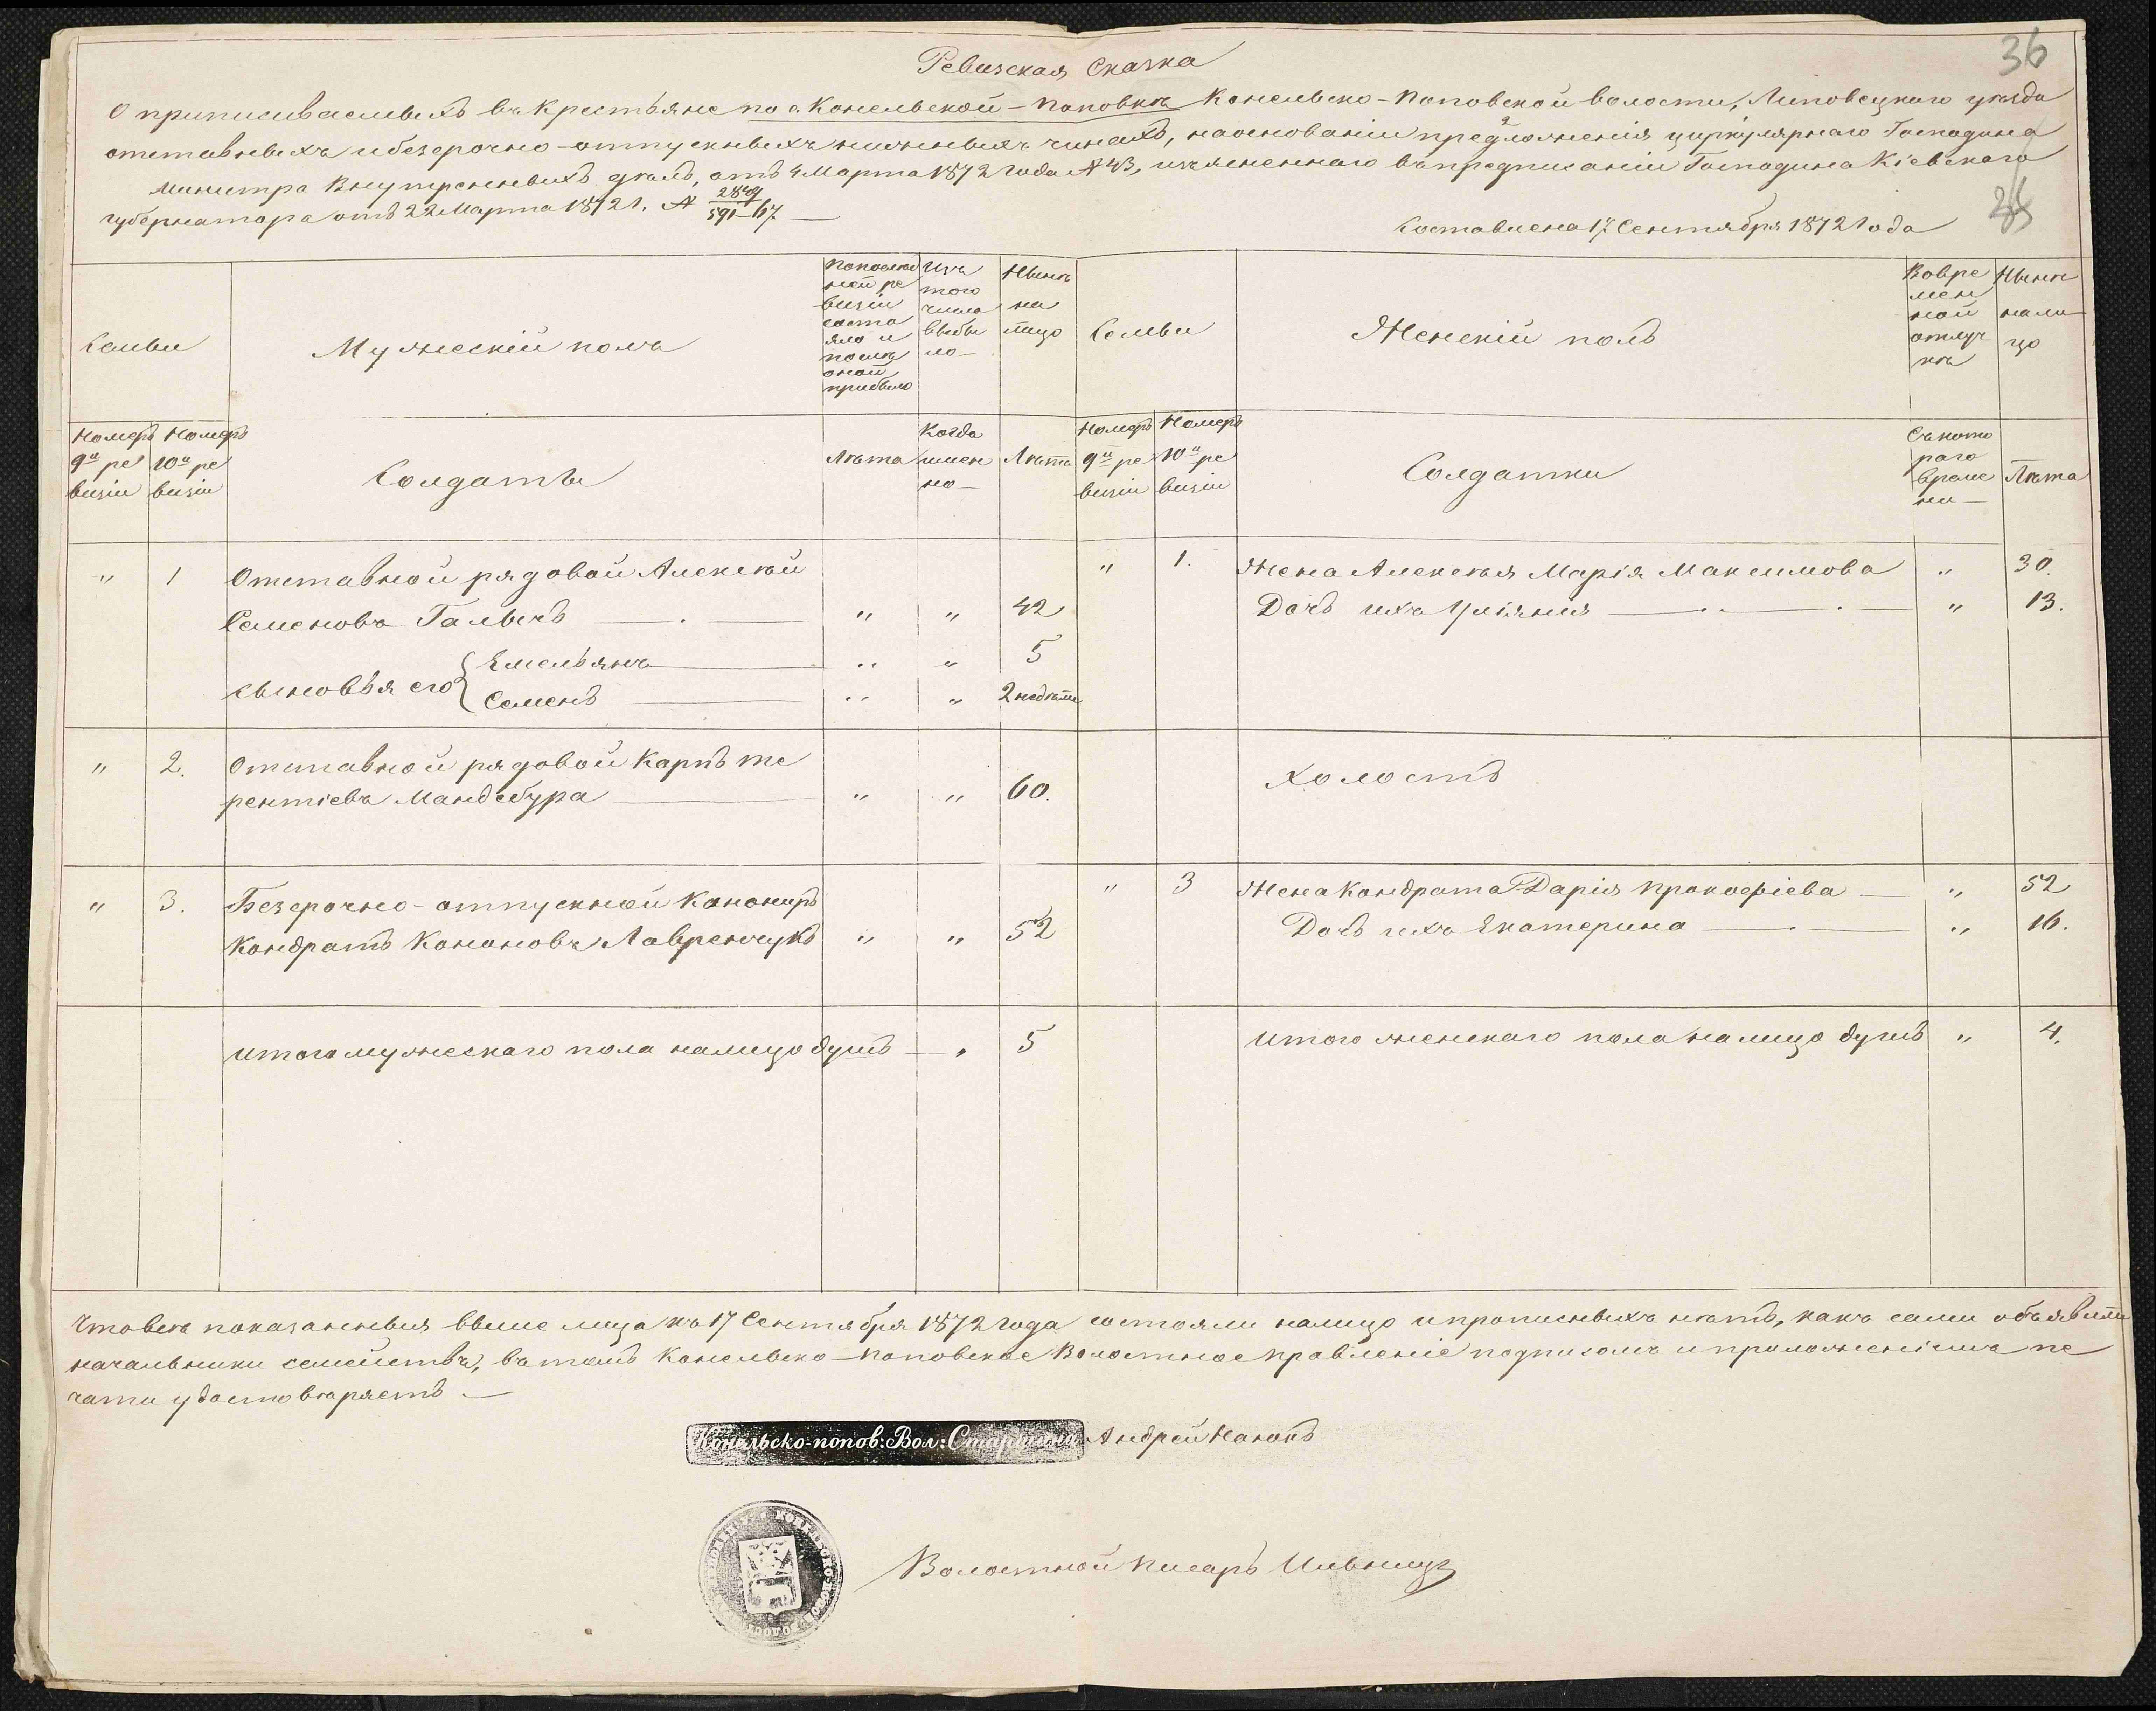 36
Ревизская Сказка
О приписиваемыхъ въ Крестьяне по с. Конельской-Поповкѣ Конельско-Поповской волости, Липовецкаго уѣзда
отставныхъ и безсрочно-отпускныхъ нижныхъ чинахъ, наоснованіи предложенія циркулярнаго Господина
Министра Внутренныхъ дѣлъ, отъ 4 Марта 1872 года № 43, изъясненнаго въ предписаніи Господина Кіевскаго
губернатора отъ 22 Марта 1872 г. № 2849/591-67.
Составлена 17 Сентября 1872 года
Семьи
Мужескій полъ
По послѣд
ней ре
визіи
состо
яло и
послѣ
оной
прибыло
Изъ
того
числа
выбы
ло
Нынѣ
на
лицо
Семьи
Женскій полъ
Вовре
мен
ной
отлуч
кѣ
Нынѣ
нали
цо
Номеръ
9й ре
визіи
Номеръ
10й ре
визіи
Солдаты
Лѣта
Когда
имен
но
Лѣта
Номеръ
9й ре
визіи
Номеръ
10й ре
визіи
Солдатки
Съ кото
раго
време
ни
Лѣта
" 1 Отставной рядовой Алексѣй
Семеновъ Галычъ " " 42
сыновья его { Емельянъ " " 5
Семенъ " " 2 недѣли
" 1. Жена Алексѣя Марія Максимова " 30.
Дочь ихъ Уліянія " 13.
" 2. Отставной рядовой Карпъ Те
рентіевъ Мандебура " " 60.
Холостъ
" 3. Безсрочно-отпускной Канониръ
Кондратъ Кононовъ Лавренчукъ " " 52
" 3 Жена Кондрата Дарія Прокофіева " 52
Дочь ихъ Екатерина " 16.
Итого мужескаго пола налицо душъ " 5
Итого женскаго пола налицо душъ " 4.
Что всѣ показанныя выше лица къ 17 Сентября 1872 года состояли налицо и прописныхъ нѣтъ, какъ сами объявили
начальники семействъ, въ томъ Конельско-Поповское Волостное Правленіе подписомъ и приложеніемъ пе
чати удостовѣряетъ.
Конельско-попов: Вол: Старшина Андрей
Волостной Писарь